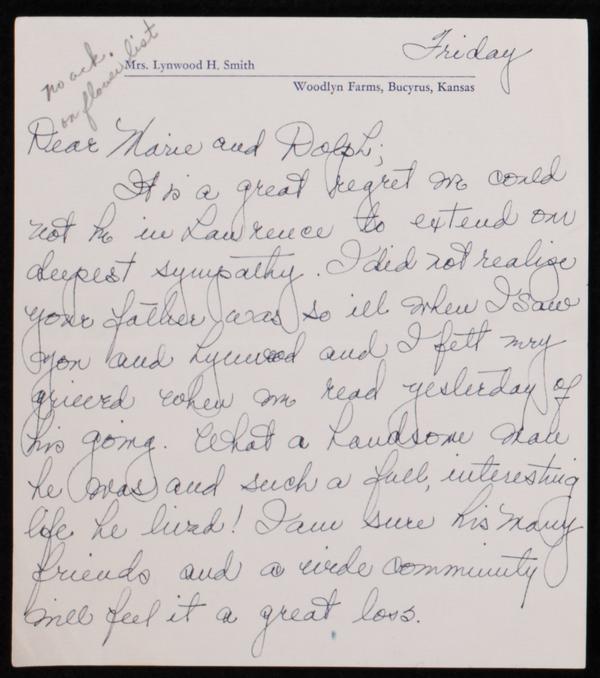 no ack.
on flower list
Friday
Mrs. Lynwood H. Smith
Woodlyn Farms, Bucyrus, Kansas
Dear Marie and Dolph;
It is a great regret we could
not be in Lawrence to extend our
deepest sympathy. I did not realize
your father was so ill when I saw
you and Lynwood and I felt very
grieved when we read yesterday of
his going. What a handsome man
he was and such a full, interesting
life he lived! I am sure his many
friends and a wide community
will feel it a great loss.